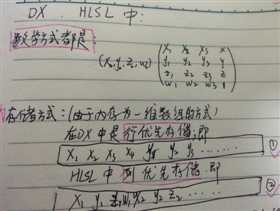 DX . HLSL 中:
数学方式都是
(x, y, z, w)
x₁ x₂ x₃ x
y₁ y₂ y₃ y
z₁ z₂ z₃ z
w₁ w₂ w₃ 1
存储方式:(由于内存为一维数组的方式)
在DX 中是行优先存储.即
X₁ X₂ X₃ X₄ y₁ y₂ y₃ ...... ①
HLSL 中 列优先存储.即
X₁ y₁ z₁ w₁ x₂ y₂ z₂ ...... ②